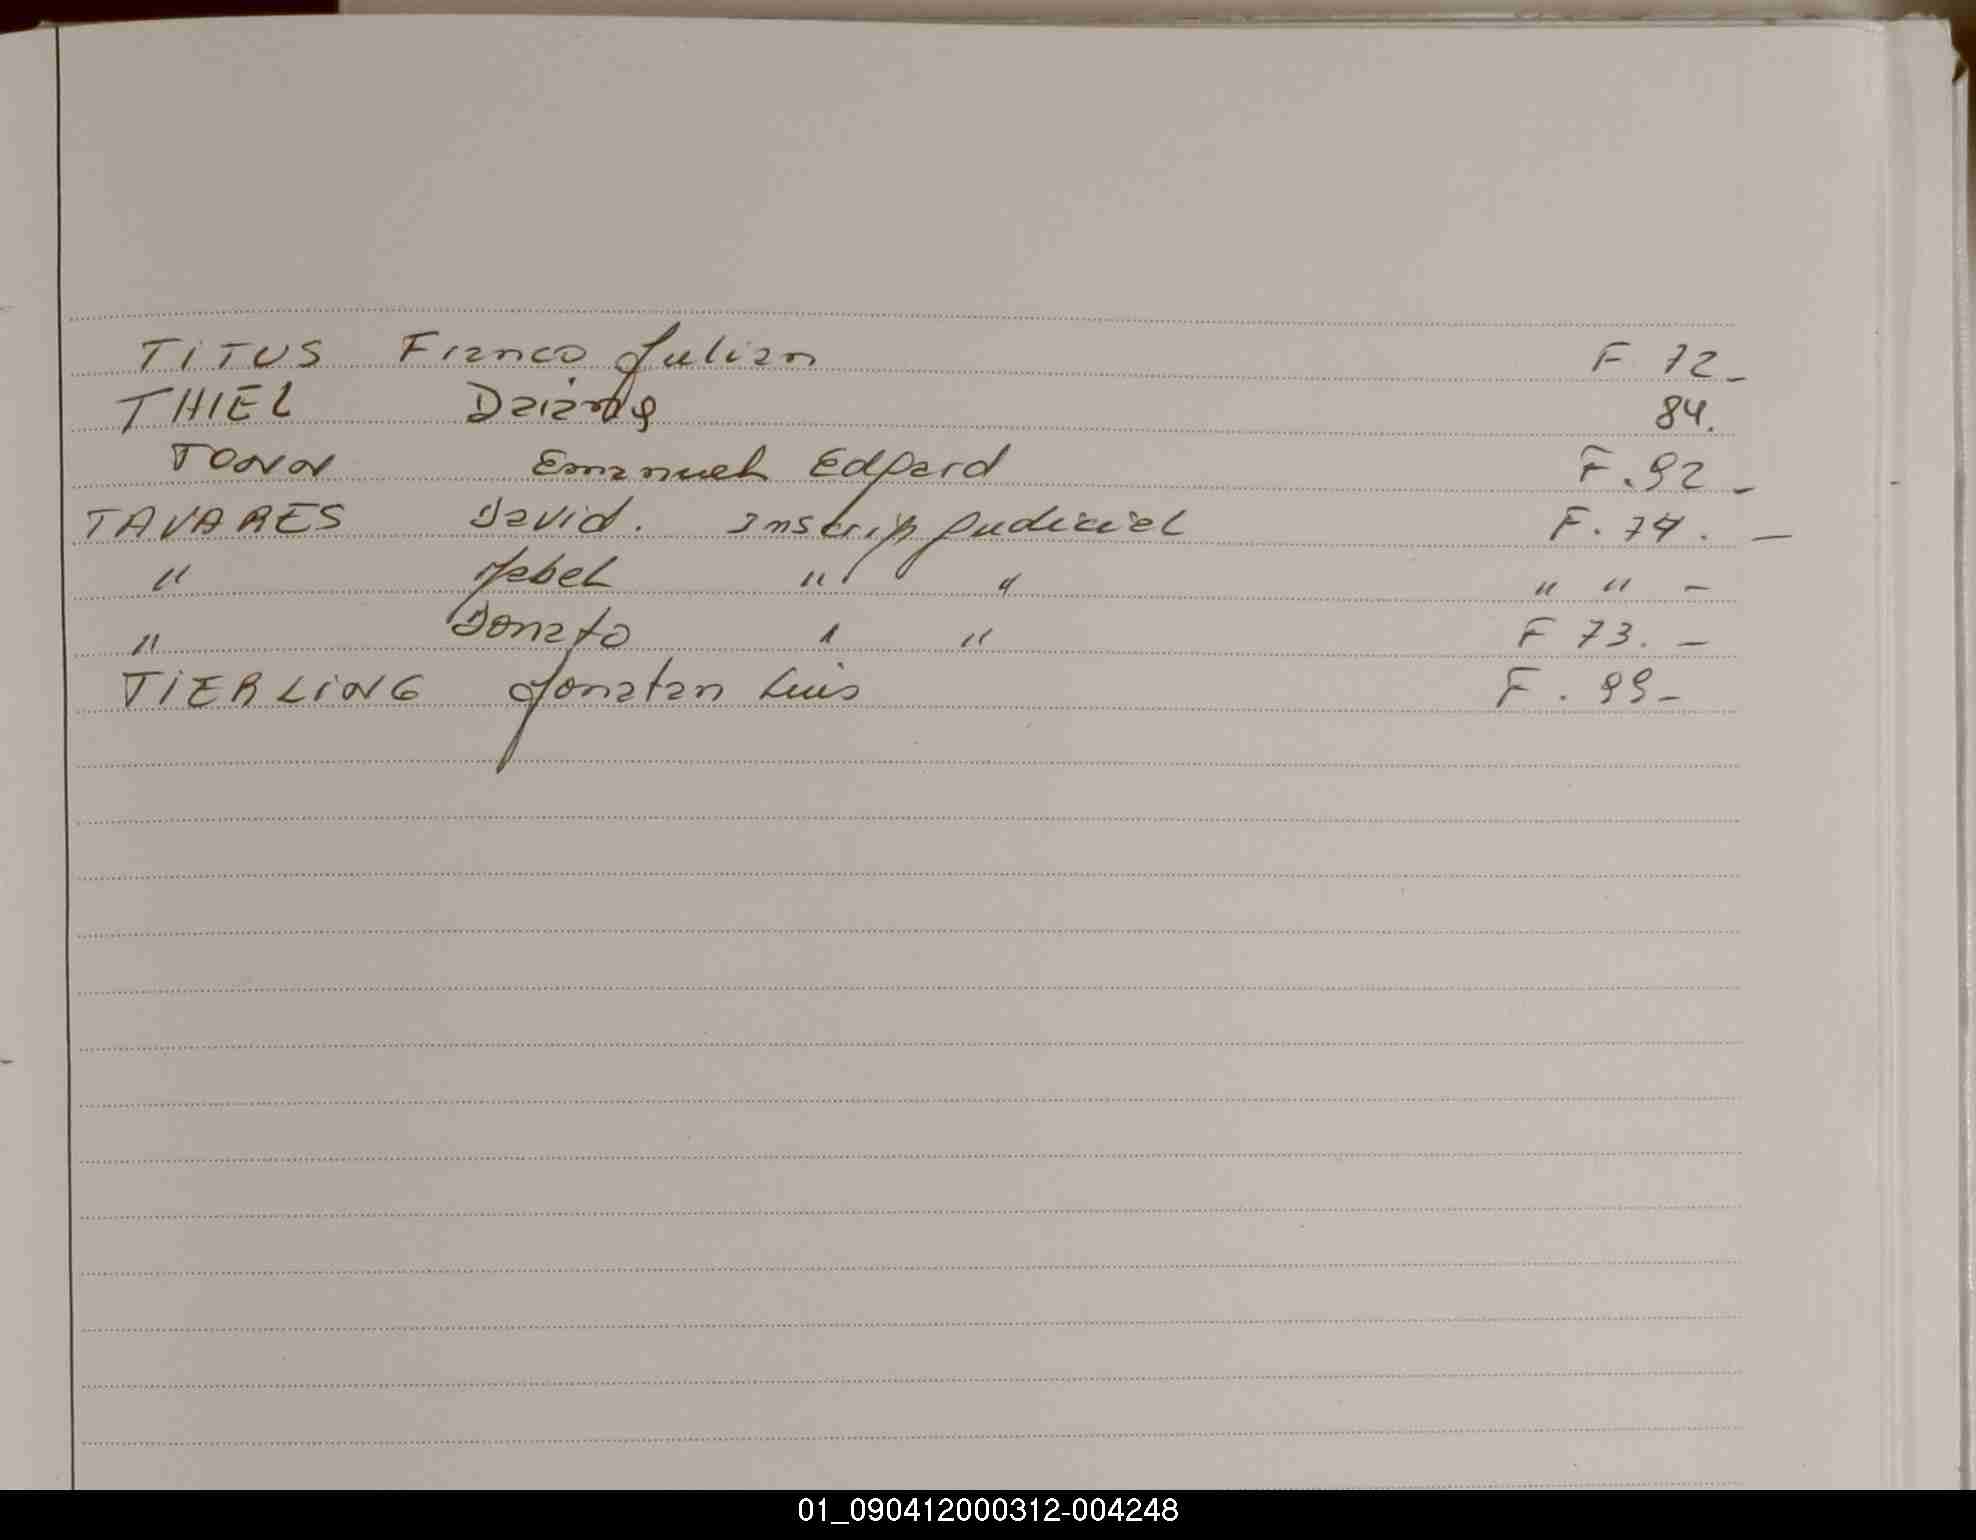 TITUS Franco Julian F 72_
THIEL Daiana 84.
TONN Emanuel Edgard F. 92_
TAVARES David. Inscrip judicial F. 74. _
" Mabel " " " " _
" Donato " " F 73. _
TIERLING Jonatan Luis F. 99_
01_090412000312-004248